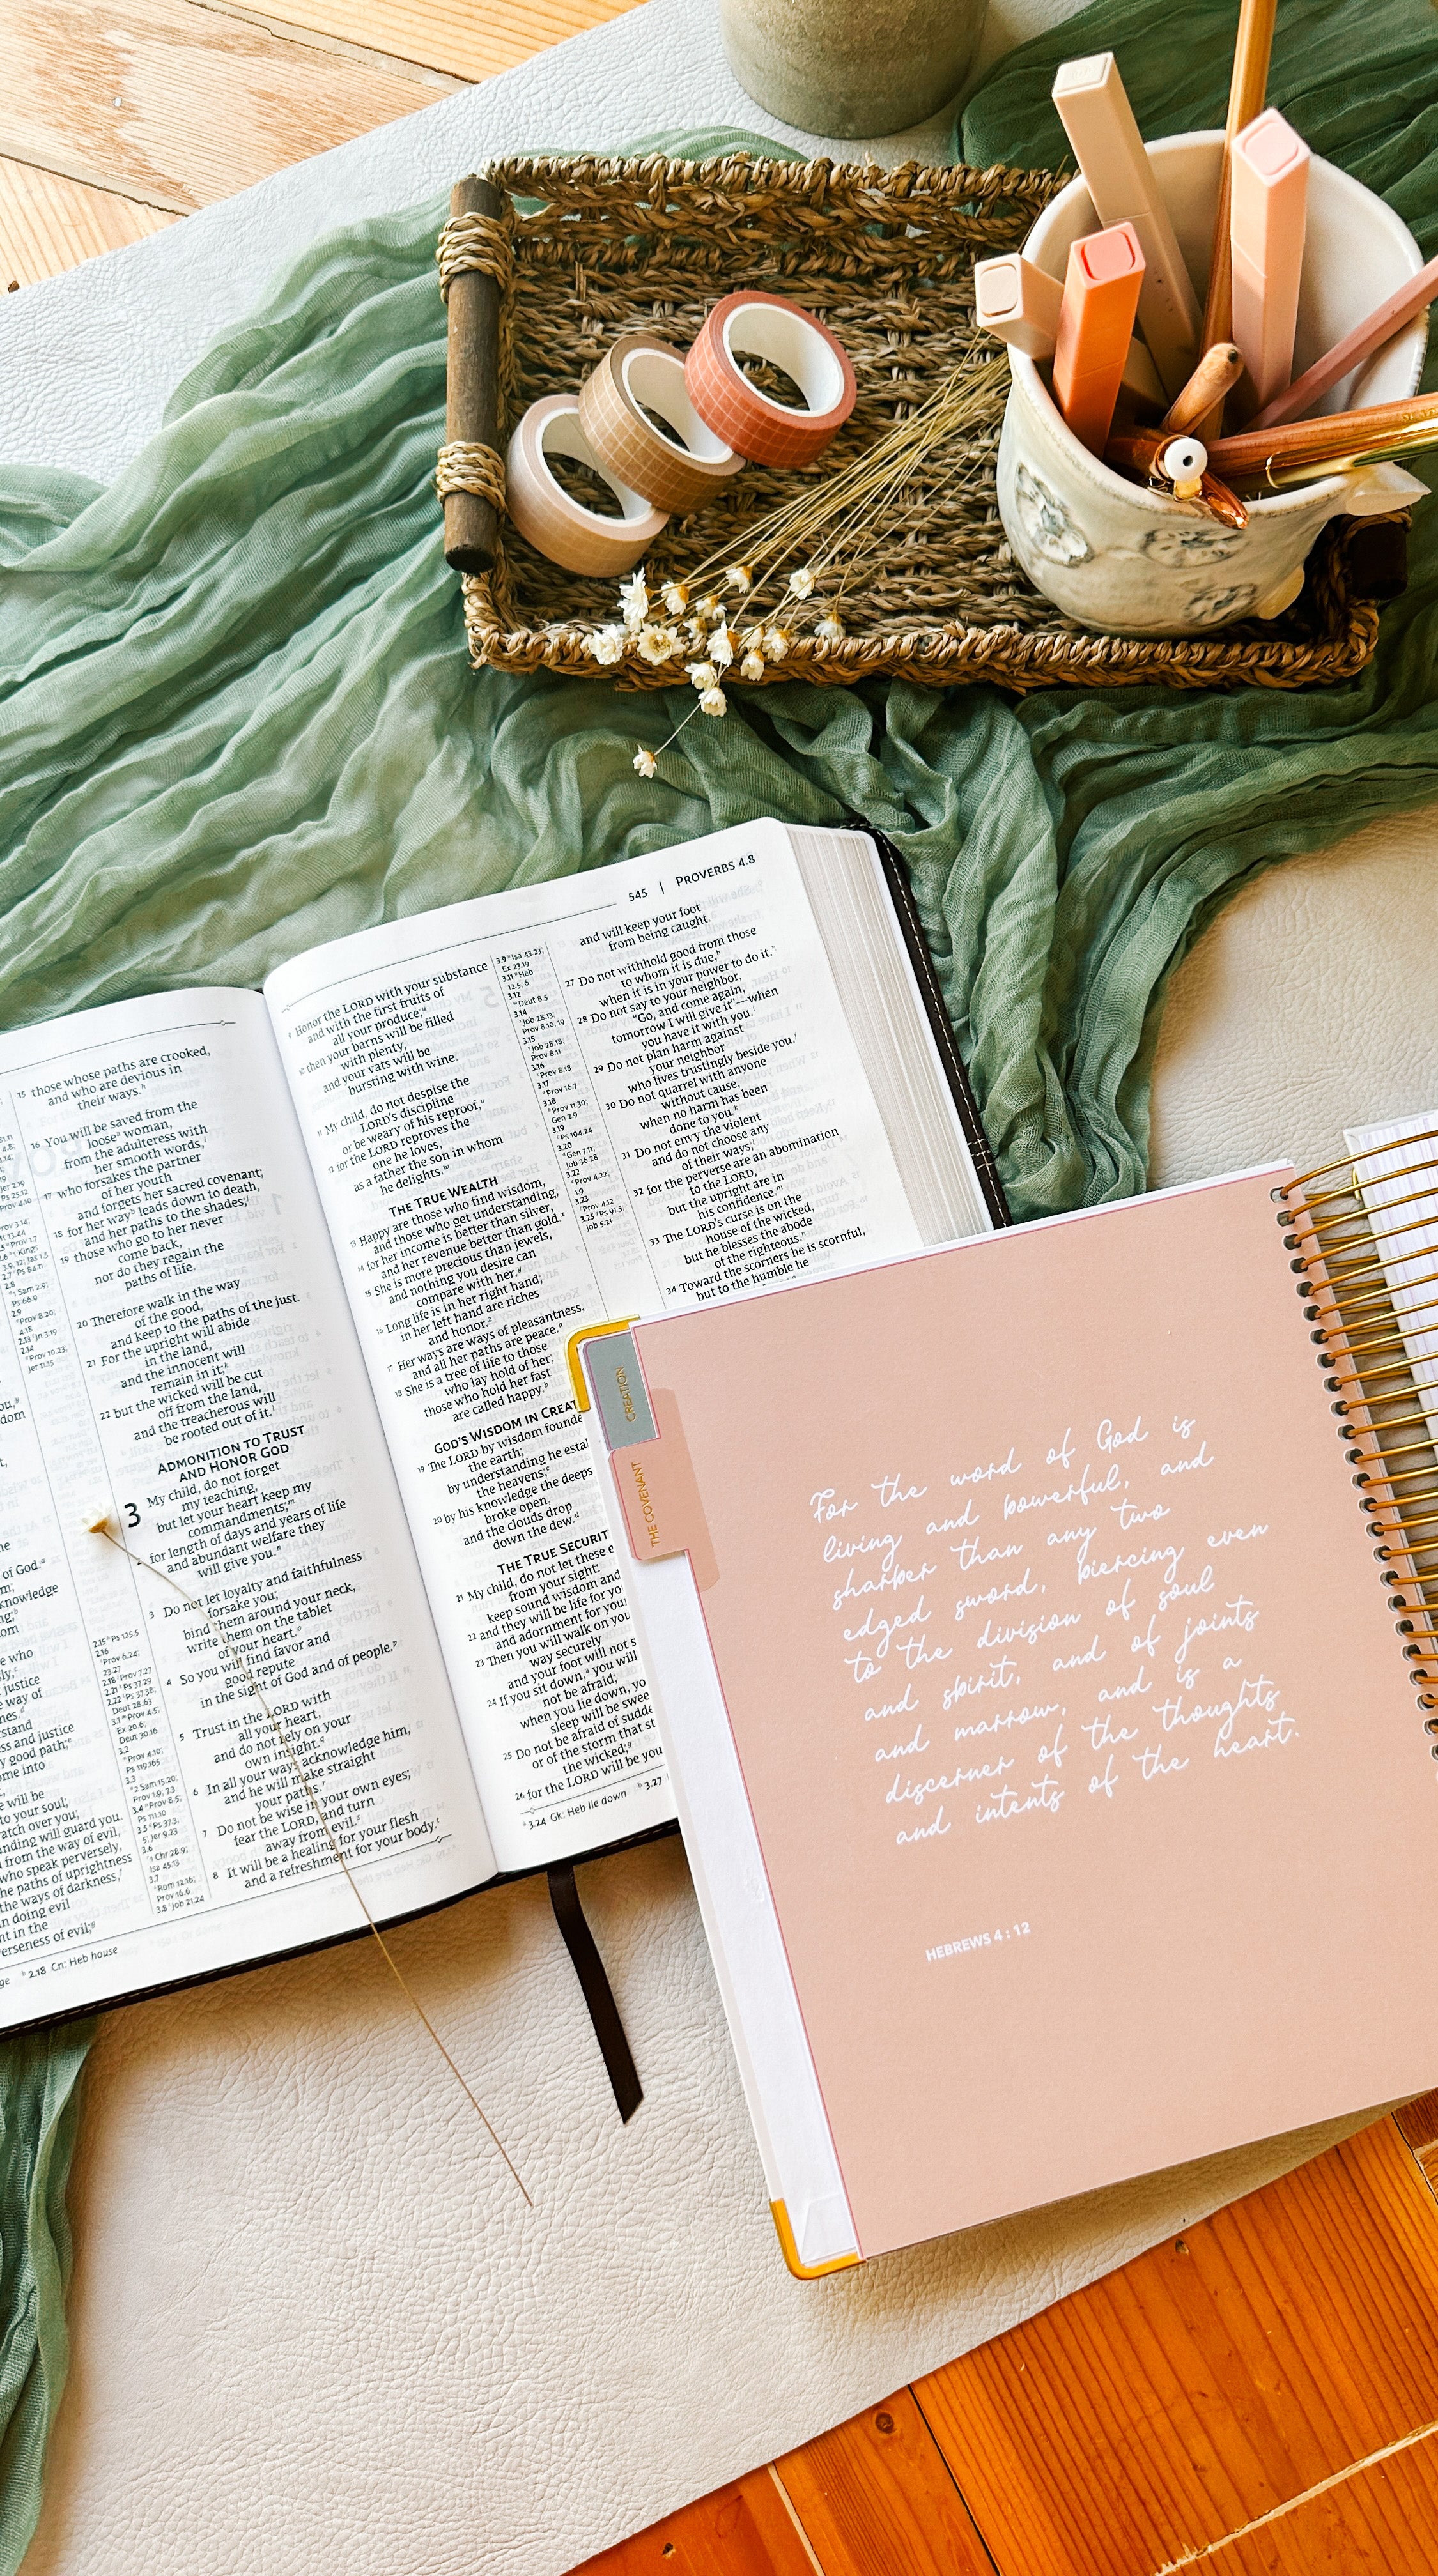 545 | PROVERBS 4.8
of God.
knowledge
e who
justice
way of
stand
ss and justice
y good path;
ome into
will be
to your soul;
atch over you;
nding will guard you.
from the way of evil,
who speak perversely,
he paths of uprightness
the ways of darkness,
in doing evil
nt in the
verseness of evil;
2.18 Cn: Heb house
15 those whose paths are crooked,
and who are devious in
their ways.
16 You will be saved from the
loose woman,
from the adulteress with
her smooth words,
17 who forsakes the partner
of her youth
and forgets her sacred covenant;
18 for her way leads down to death,
and her paths to the shades;
19 those who go to her never
come back,
nor do they regain the
paths of life.
20 Therefore walk in the way
of the good,
and keep to the paths of the just.
21 For the upright will abide
in the land,
and the innocent will
remain in it;
22 but the wicked will be cut
off from the land,
and the treacherous will
be rooted out of it.
ADMONITION TO TRUST
AND HONOR GOD
3 My child, do not forget
my teaching,
but let your heart keep my
commandments;
2 for length of days and years of life
and abundant welfare they
will give you.
3 Do not let loyalty and faithfulness
forsake you;
bind them around your neck,
write them on the tablet
of your heart.
4 So you will find favor and
good repute
in the sight of God and of people.
5 Trust in the LORD with
all your heart,
and do not rely on your
own insight.
6 In all your ways acknowledge him,
and he will make straight
your paths.
7 Do not be wise in your own eyes;
fear the LORD, and turn
away from evil.
8 It will be a healing for your flesh
and a refreshment for your body.
9 Honor the LORD with your substance
and with the first fruits of
all your produce;
10 then your barns will be filled
with plenty,
and your vats will be
bursting with wine.
11 My child, do not despise the
LORD's discipline
or be weary of his reproof,
12 for the LORD reproves the
one he loves,
as a father the son in whom
he delights.
THE TRUE WEALTH
13 Happy are those who find wisdom,
and those who get understanding,
14 for her income is better than silver,
and her revenue better than gold.
15 She is more precious than jewels,
and nothing you desire can
compare with her.
16 Long life is in her right hand;
in her left hand are riches
and honor.
17 Her ways are ways of pleasantness,
and all her paths are peace.
18 She is a tree of life to those
who lay hold of her;
those who hold her fast
are called happy.
GOD'S WISDOM IN CREAT
19 The LORD by wisdom founde
the earth;
by understanding he estal
the heavens;
20 by his knowledge the deeps
broke open,
and the clouds drop
down the dew.
THE TRUE SECURIT
21 My child, do not let these e
from your sight:
keep sound wisdom and
22 and they will be life for yo
and adornment for your
23 Then you will walk on you
way securely
and your foot will not s
24 If you sit down, you will
not be afraid;
when you lie down, yo
sleep will be swee
25 Do not be afraid of sudde
or of the storm that st
the wicked;
26 for the LORD will be you
3.24 Gk: Heb lie down 3.27
and will keep your foot
from being caught.
27 Do not withhold good from those
to whom it is due,
when it is in your power to do it.
28 Do not say to your neighbor,
“Go, and come again,
tomorrow I will give it”—when
you have it with you.
29 Do not plan harm against
your neighbor
who lives trustingly beside you.
30 Do not quarrel with anyone
without cause,
when no harm has been
done to you.
31 Do not envy the violent
and do not choose any
of their ways;
32 for the perverse are an abomination
to the LORD,
but the upright are in
his confidence.
33 The LORD's curse is on the
house of the wicked,
but he blesses the abode
of the righteous.
34 Toward the scorners he is scornful,
but to the humble he
CREATION
THE COVENANT
For the word of God is
living and powerful, and
sharper than any two
edged sword, piercing even
to the division of soul
and spirit, and of joints
and marrow, and is a
discerner of the thoughts
and intents of the heart.
HEBREWS 4 : 12